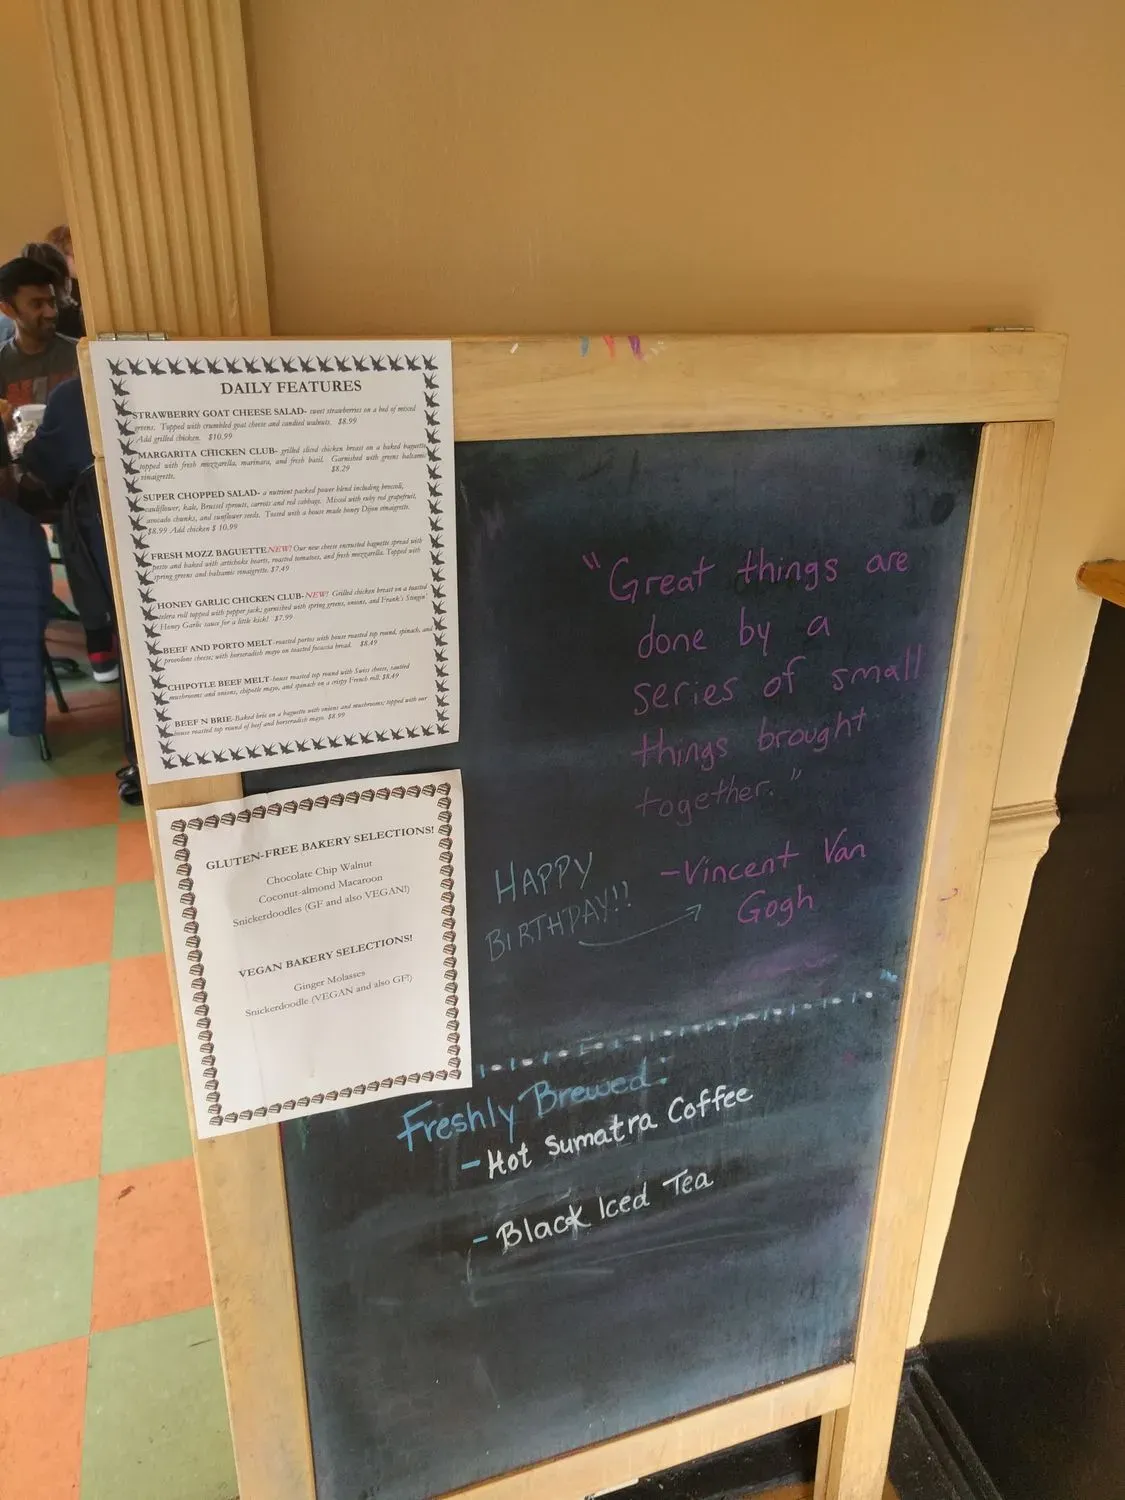 DAILY FEATURES
STRAWBERRY GOAT CHEESE SALAD- sweet strawberries on a bed of mixed
greens. Topped with crumbled goat cheese and candied walnuts. $8.99
Add grilled chicken. $10.99
MARGARITA CHICKEN CLUB- grilled sliced chicken breast on a baked baguette
topped with fresh mozzarella, marinara, and fresh basil. Garnished with greens balsamic
vinaigrette. $8.29
SUPER CHOPPED SALAD- a nutrient packed power blend including broccoli,
cauliflower, kale, Brussel sprouts, carrots and red cabbage. Mixed with ruby red grapefruit,
avocado chunks, and sunflower seeds. Tossed with a house made honey Dijon vinaigrette.
$8.99 Add chicken $ 10.99
FRESH MOZZ BAGUETTE NEW! Our new cheese encrusted baguette spread with
pesto and baked with artichoke hearts, roasted tomatoes, and fresh mozzarella. Topped with
spring greens and balsamic vinaigrette. $7.49
HONEY GARLIC CHICKEN CLUB- NEW! Grilled chicken breast on a toasted
telera roll topped with pepper jack; garnished with spring greens, onions, and Frank's Stingin'
Honey Garlic sauce for a little kick! $7.99
BEEF AND PORTO MELT-roasted portos with house roasted top round, spinach, and
provolone cheese; with horseradish mayo on toasted focaccia bread. $8.49
CHIPOTLE BEEF MELT-house roasted top round with Swiss cheese, sautéed
mushrooms and onions, chipotle mayo, and spinach on a crispy French roll. $8.49
BEEF N BRIE-Baked brie on a baguette with onions and mushrooms; topped with our
house roasted top round of beef and horseradish mayo. $8.99
GLUTEN-FREE BAKERY SELECTIONS!
Chocolate Chip Walnut
Coconut-almond Macaroon
Snickerdoodles (GF and also VEGAN!)
VEGAN BAKERY SELECTIONS!
Ginger Molasses
Snickerdoodle (VEGAN and also GF!)
"Great things are
done by a
series of small
things brought
together."
-Vincent Van
Gogh
HAPPY
BIRTHDAY!!
Freshly Brewed:
- Hot Sumatra Coffee
- Black Iced Tea